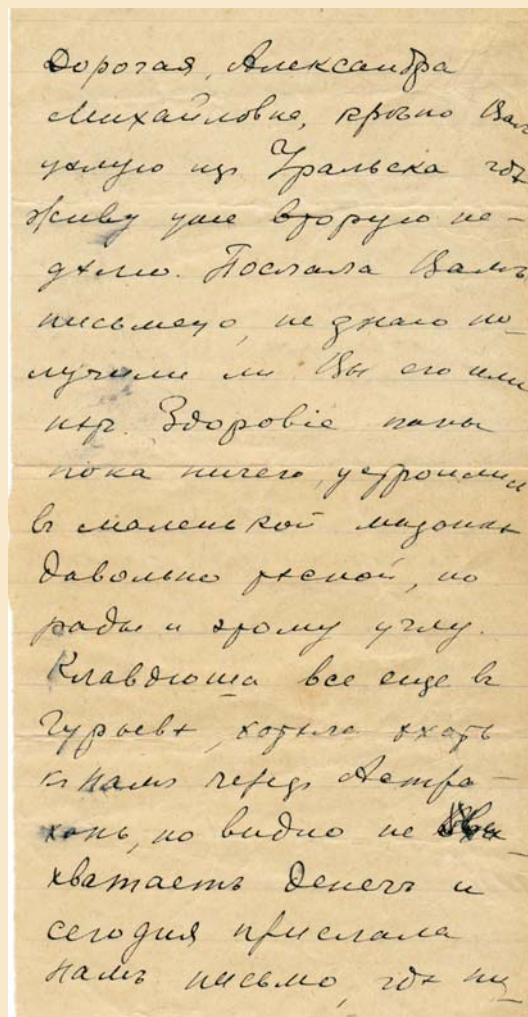 Дорогая, Александра
Михайловна, крѣпко Вас
цѣлую изъ Уральска гдѣ
живу уже вторую не-
дѣлю. Послала Вамъ
письмецо, не знаю по-
лучили ли Вы его или
нѣт. Здоровіе папы
пока ничего, устроились
въ маленькой мазанкѣ
давольно тѣсной, но
рады и этому углу.
Клавдюша все еще въ
Гурьевѣ, хотѣла ѣхать
къ намъ черезъ Астра-
хань, но видно не
хватаетъ денегъ и
сегодня прислала
намъ письмо, гдѣ пи-